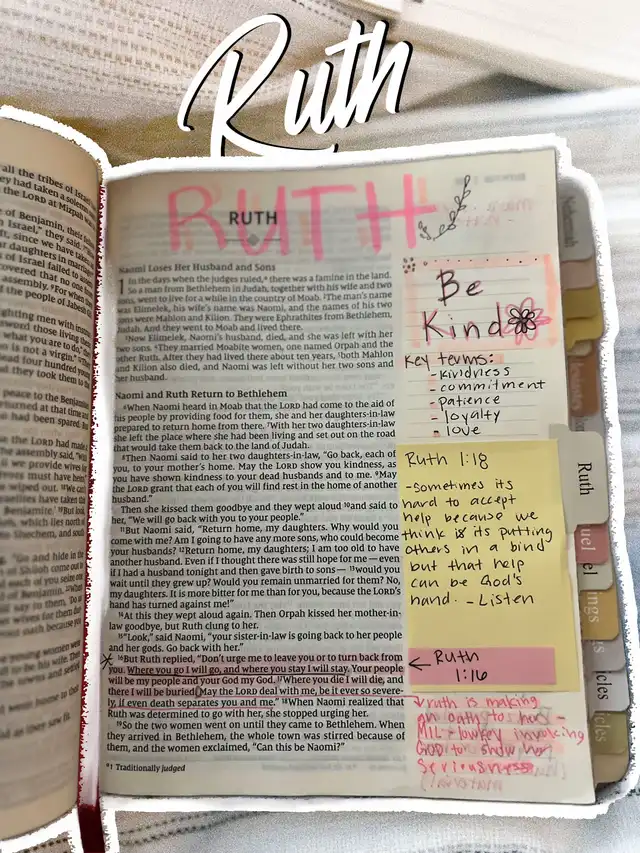 Ruth
all the tribes of Israel
they had taken a solemn
the LORD at Mizpah
of Benjamin, their
Israel," they said.
since we have taken
daughters in marriage
of Israel failed to
covered that no one
assembly.
the people of Jabesh
fighting men with
sword those living
what you are to do,"
is not a virgin."
head four hundred young
they took them to
peace to the Benjamites
returned at that time and
had been spared. But
the LORD had made
the assembly said,
RUTH
RUTH
Naomi Loses Her Husband and Sons
1 In the days when the judges ruled,ᵃ there was a famine in the land.
So a man from Bethlehem in Judah, together with his wife and two
sons, went to live for a while in the country of Moab. ²The man's name
was Elimelek, his wife's name was Naomi, and the names of his two
sons were Mahlon and Kilion. They were Ephrathites from Bethlehem,
Judah. And they went to Moab and lived there.
³Now Elimelek, Naomi's husband, died, and she was left with her
two sons. ⁴They married Moabite women, one named Orpah and the
other Ruth. After they had lived there about ten years, ⁵both Mahlon
and Kilion also died, and Naomi was left without her two sons and
her husband.
Naomi and Ruth Return to Bethlehem
⁶When Naomi heard in Moab that the LORD had come to the aid of
his people by providing food for them, she and her daughters-in-law
prepared to return home from there. ⁷With her two daughters-in-law
she left the place where she had been living and set out on the road
that would take them back to the land of Judah.
⁸Then Naomi said to her two daughters-in-law, "Go back, each of
you, to your mother's home. May the LORD show you kindness, as
you have shown kindness to your dead husbands and to me. ⁹May
the LORD grant that each of you will find rest in the home of another
husband."
Then she kissed them goodbye and they wept aloud ¹⁰and said to
her, "We will go back with you to your people."
¹¹But Naomi said, "Return home, my daughters. Why would you
come with me? Am I going to have any more sons, who could become
your husbands? ¹²Return home, my daughters; I am too old to have
another husband. Even if I thought there was still hope for me — even
if I had a husband tonight and then gave birth to sons — ¹³would you
wait until they grew up? Would you remain unmarried for them? No,
my daughters. It is more bitter for me than for you, because the LORD's
hand has turned against me!"
¹⁴At this they wept aloud again. Then Orpah kissed her mother-in-
law goodbye, but Ruth clung to her.
¹⁵"Look," said Naomi, "your sister-in-law is going back to her people
and her gods. Go back with her."
¹⁶But Ruth replied, "Don't urge me to leave you or to turn back from
you. Where you go I will go, and where you stay I will stay. Your people
will be my people and your God my God. ¹⁷Where you die I will die, and
there I will be buried. May the LORD deal with me, be it ever so severe-
ly, if even death separates you and me." ¹⁸When Naomi realized that
Ruth was determined to go with her, she stopped urging her.
¹⁹So the two women went on until they came to Bethlehem. When
they arrived in Bethlehem, the whole town was stirred because of
them, and the women exclaimed, "Can this be Naomi?"
ᵃ1 Traditionally judged
Be
Kind
Key terms:
-kindness
-commitment
-patience
-loyalty
-love
Ruth 1:18
-sometimes its
hard to accept
help because we
think is its putting
others in a bind
but that help
can be God's
hand. -Listen
← Ruth
1:16
ruth is making
an oath to her
MIL - lowkey invoking
GOD to show her
seriousness
Nehemiah
Ruth
uel
el
ngs
ings
icles
icles